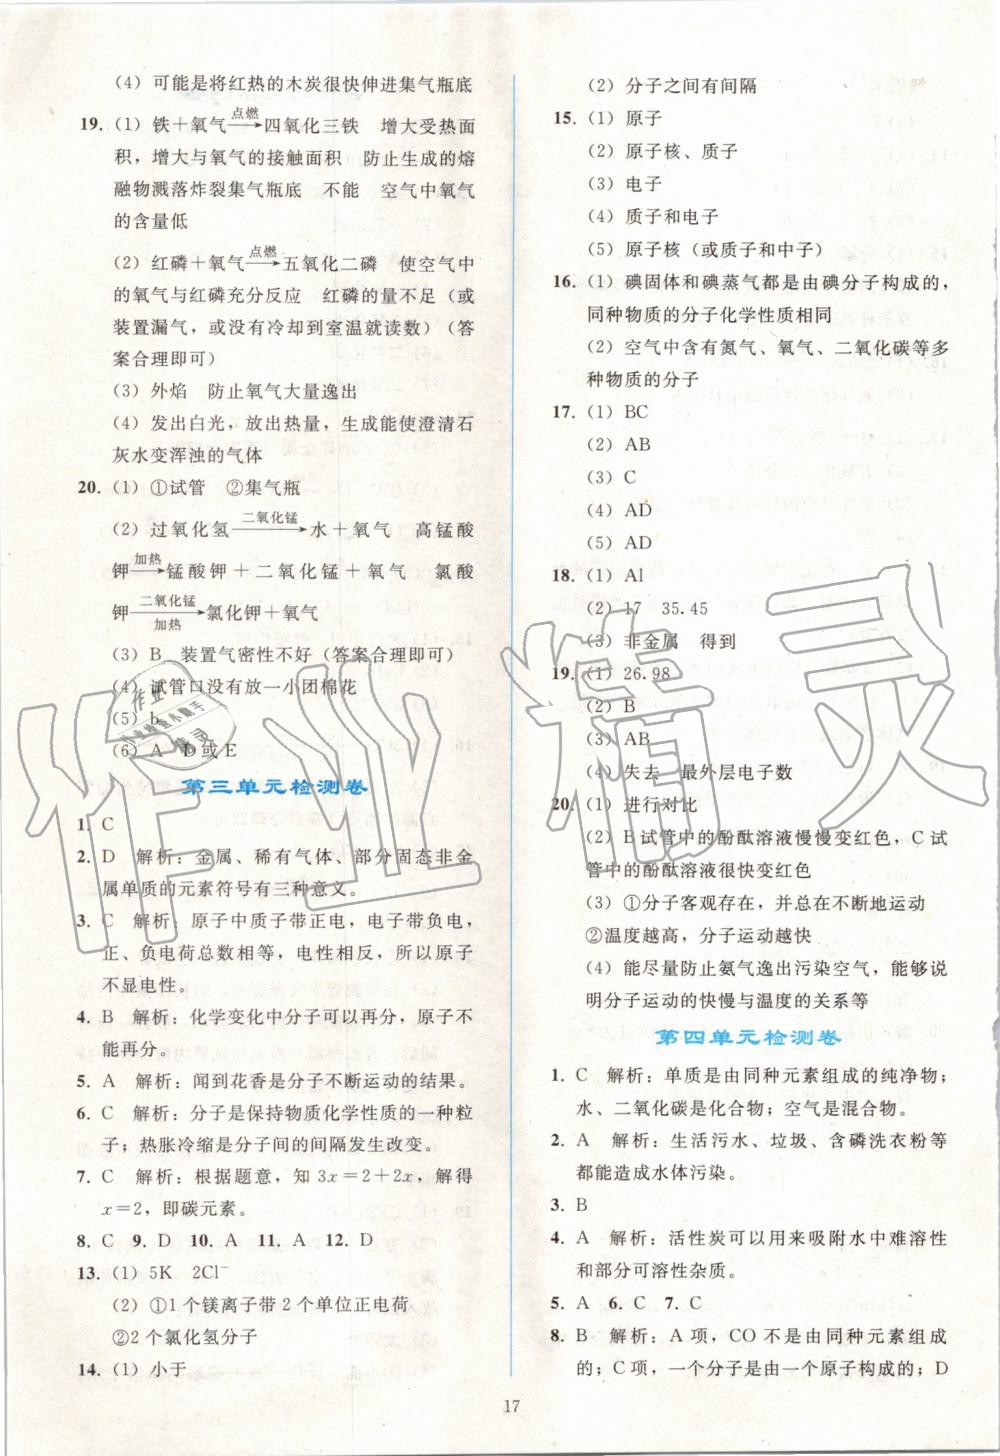 (4) 可能是将红热的木炭很快伸进集气瓶底
19. (1) 铁＋氧气—点燃→四氧化三铁　增大受热面
积，增大与氧气的接触面积　防止生成的熔
融物溅落炸裂集气瓶底　不能　空气中氧气
的含量低
(2) 红磷＋氧气—点燃→五氧化二磷　使空气中
的氧气与红磷充分反应　红磷的量不足（或
装置漏气，或没有冷却到室温就读数）（答
案合理即可）
(3) 外焰　防止氧气大量逸出
(4) 发出白光，放出热量，生成能使澄清石
灰水变浑浊的气体
20. (1) ①试管　②集气瓶
(2) 过氧化氢—二氧化锰→水＋氧气　高锰酸
钾—加热→锰酸钾＋二氧化锰＋氧气　氯酸
钾—二氧化锰/加热→氯化钾＋氧气
(3) B　装置气密性不好（答案合理即可）
(4) 试管口没有放一小团棉花
(5) b
(6) A　D或E
第三单元检测卷
1. C
2. D　解析：金属、稀有气体、部分固态非金
属单质的元素符号有三种意义。
3. C　解析：原子中质子带正电，电子带负电，
正、负电荷总数相等，电性相反，所以原子
不显电性。
4. B　解析：化学变化中分子可以再分，原子不
能再分。
5. A　解析：闻到花香是分子不断运动的结果。
6. C　解析：分子是保持物质化学性质的一种粒
子；热胀冷缩是分子间的间隔发生改变。
7. C　解析：根据题意，知 3x＝2＋2x，解得
x＝2，即碳元素。
8. C　9. D　10. A　11. A　12. D
13. (1) 5K　2Cl⁻
(2) ①1个镁离子带2个单位正电荷
②2个氯化氢分子
14. (1) 小于
(2) 分子之间有间隔
15. (1) 原子
(2) 原子核、质子
(3) 电子
(4) 质子和电子
(5) 原子核（或质子和中子）
16. (1) 碘固体和碘蒸气都是由碘分子构成的，
同种物质的分子化学性质相同
(2) 空气中含有氮气、氧气、二氧化碳等多
种物质的分子
17. (1) BC
(2) AB
(3) C
(4) AD
(5) AD
18. (1) Al
(2) 17　35.45
(3) 非金属　得到
19. (1) 26.98
(2) B
(3) AB
(4) 失去　最外层电子数
20. (1) 进行对比
(2) B试管中的酚酞溶液慢慢变红色，C试
管中的酚酞溶液很快变红色
(3) ①分子客观存在，并总在不断地运动
②温度越高，分子运动越快
(4) 能尽量防止氨气逸出污染空气，能够说
明分子运动的快慢与温度的关系等
第四单元检测卷
1. C　解析：单质是由同种元素组成的纯净物；
水、二氧化碳是化合物；空气是混合物。
2. A　解析：生活污水、垃圾、含磷洗衣粉等
都能造成水体污染。
3. B
4. A　解析：活性炭可以用来吸附水中难溶性
和部分可溶性杂质。
5. A　6. C　7. C
8. B　解析：A项，CO不是由同种元素组成
的；C项，一个分子是由一个原子构成的；D
17
作业精灵